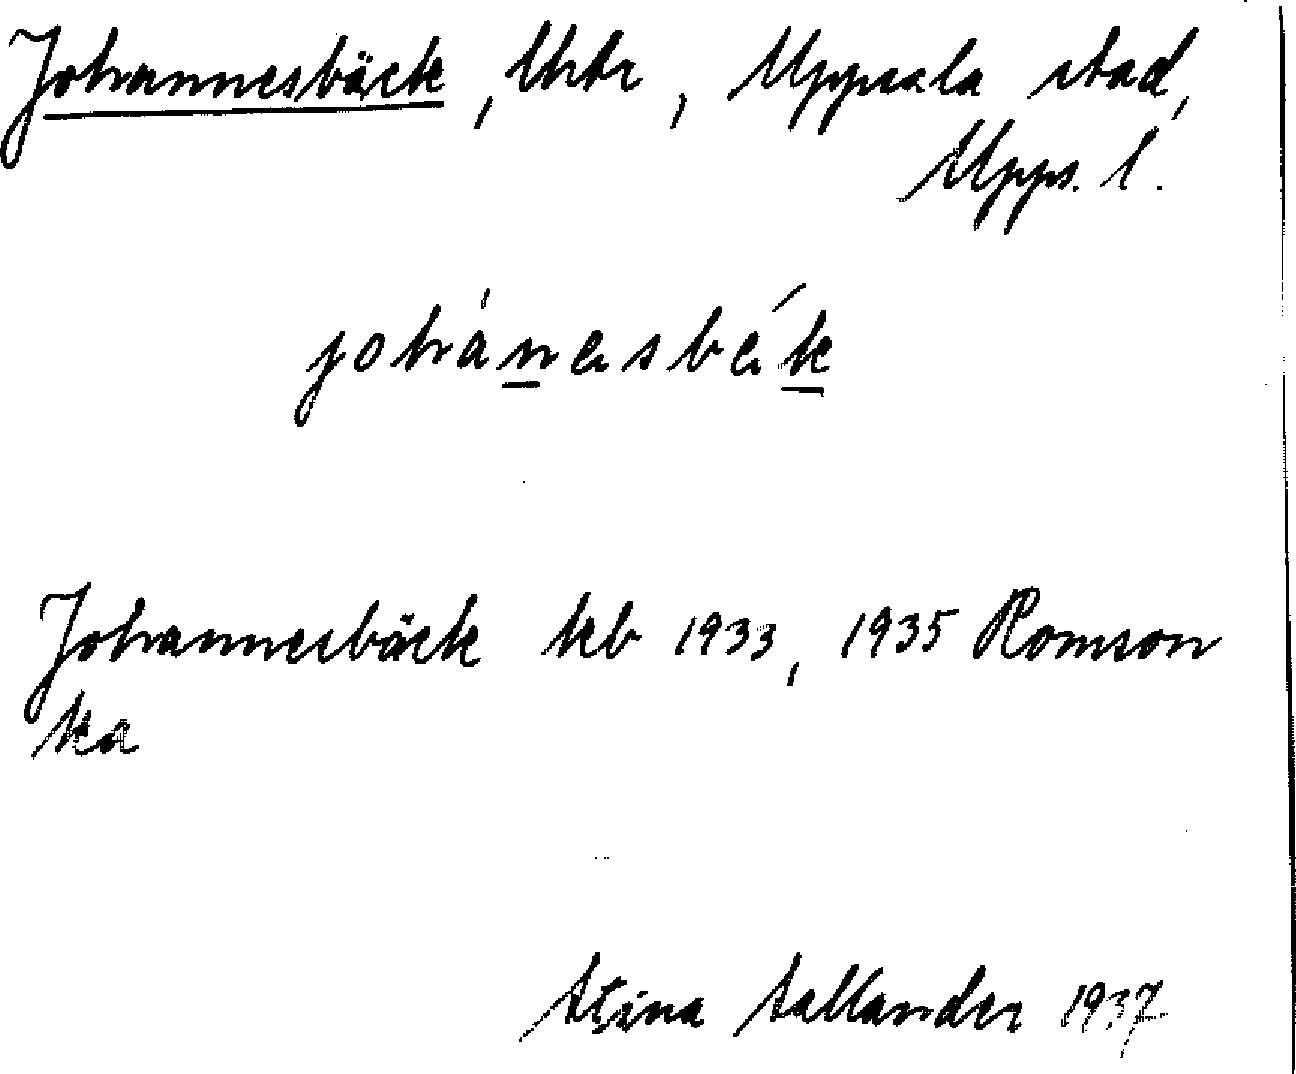 Johannesbäck, Uhtr, Uppsala stad,
Upps. l.
johánesbék
Johannesbäck keb 1933, 1935 Romson
ka
Stina Sallander 1937